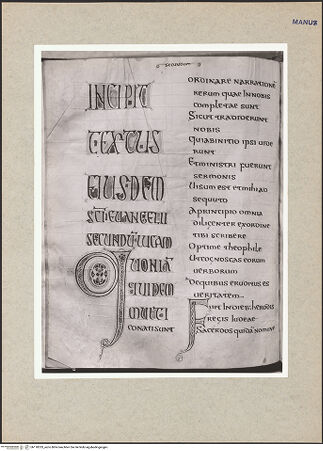 MANUS
INCIPIT
TEXTUS
EIUSDEM
SCI EUANGELII
SECUNDUM LUCAM
QUONIAM
QUIDEM
MULTI
CONATI SUNT
ORDINARE NARRATIONE
rerum quae in nobis
completae sunt
Sicut tradiderunt
nobis
Qui ab initio ipsi uide
runt
Et ministri fuerunt
sermonis
Uisum est et mihi ad
sequuto
A principio omnia
diligenter ex ordine
tibi scribere
Optime theophile
Ut cognoscas eorum
uerborum
De quibus eruditus es
ueritatem
Fuit in diebus herodis
regis iudeae
Sacerdos quidam nomine